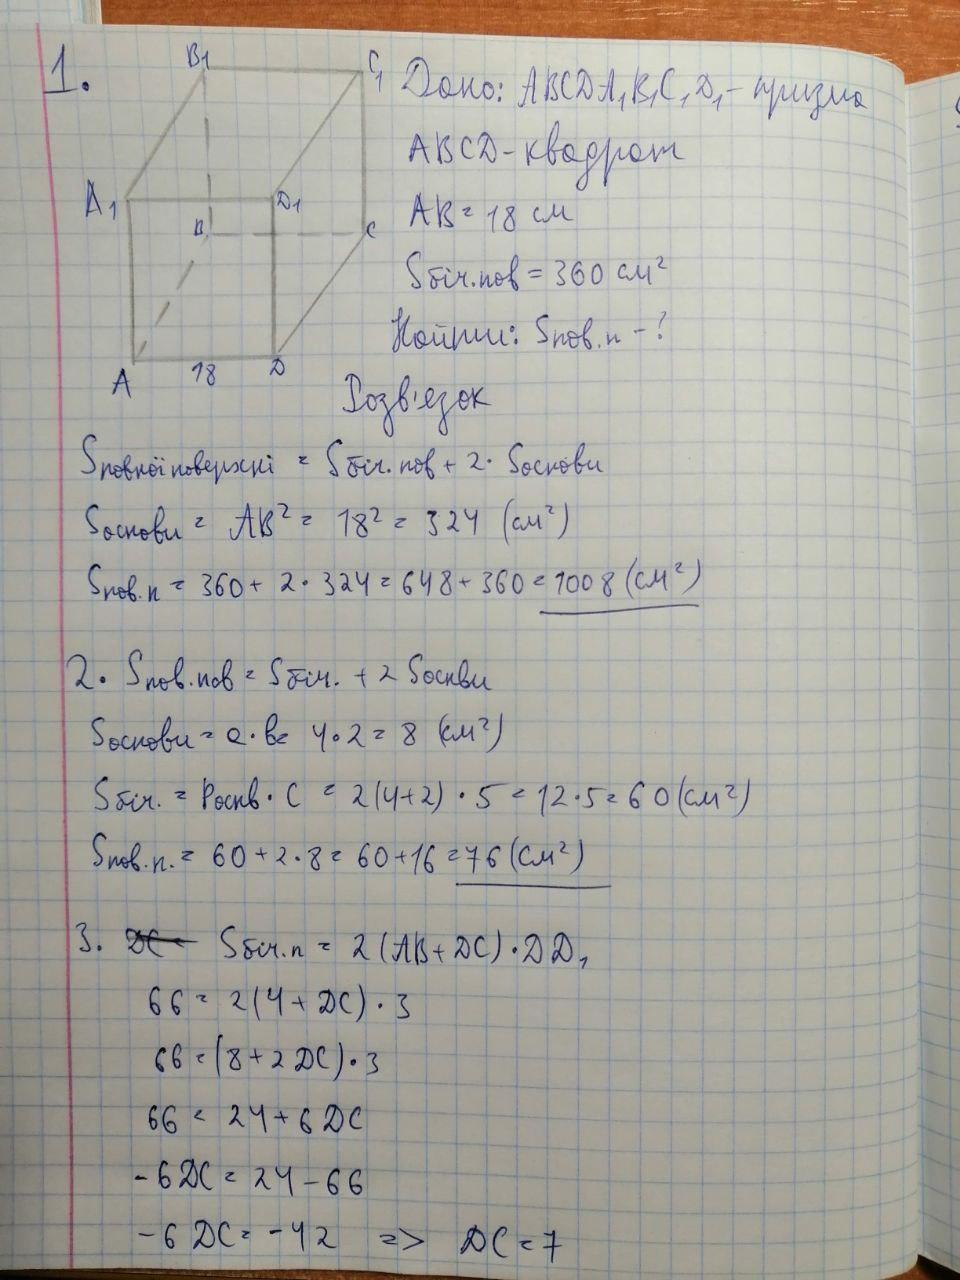 1.
B₁
C₁
Дано: ABCDA₁B₁C₁D₁ - призма
ABCD - квадрат
A₁
D₁
B
C
AB = 18 см
Sбіч.пов = 360 см²
Sпов.п - ?
A
18
D
Розв'язок
Sповної поверхні = Sбіч.пов + 2 · Sоснови
Sоснови = AB² = 18² = 324 (см²)
Sпов.п = 360 + 2 · 324 = 648 + 360 = 1008 (см²)
2. Sпов.пов = Sбіч. + 2 Sоснви
Sоснови = a · b = 4 · 2 = 8 (см²)
Sбіч. = Pоснв · C = 2(4+2) · 5 = 12 · 5 = 60 (см²)
Sпов.п. = 60 + 2 · 8 = 60 + 16 = 76 (см²)
3. Sбіч.п = 2(AB + DC) · DD₁
66 = 2(4 + DC) · 3
66 = (8 + 2DC) · 3
66 = 24 + 6DC
-6DC = 24 - 66
-6DC = -42 => DC = 7